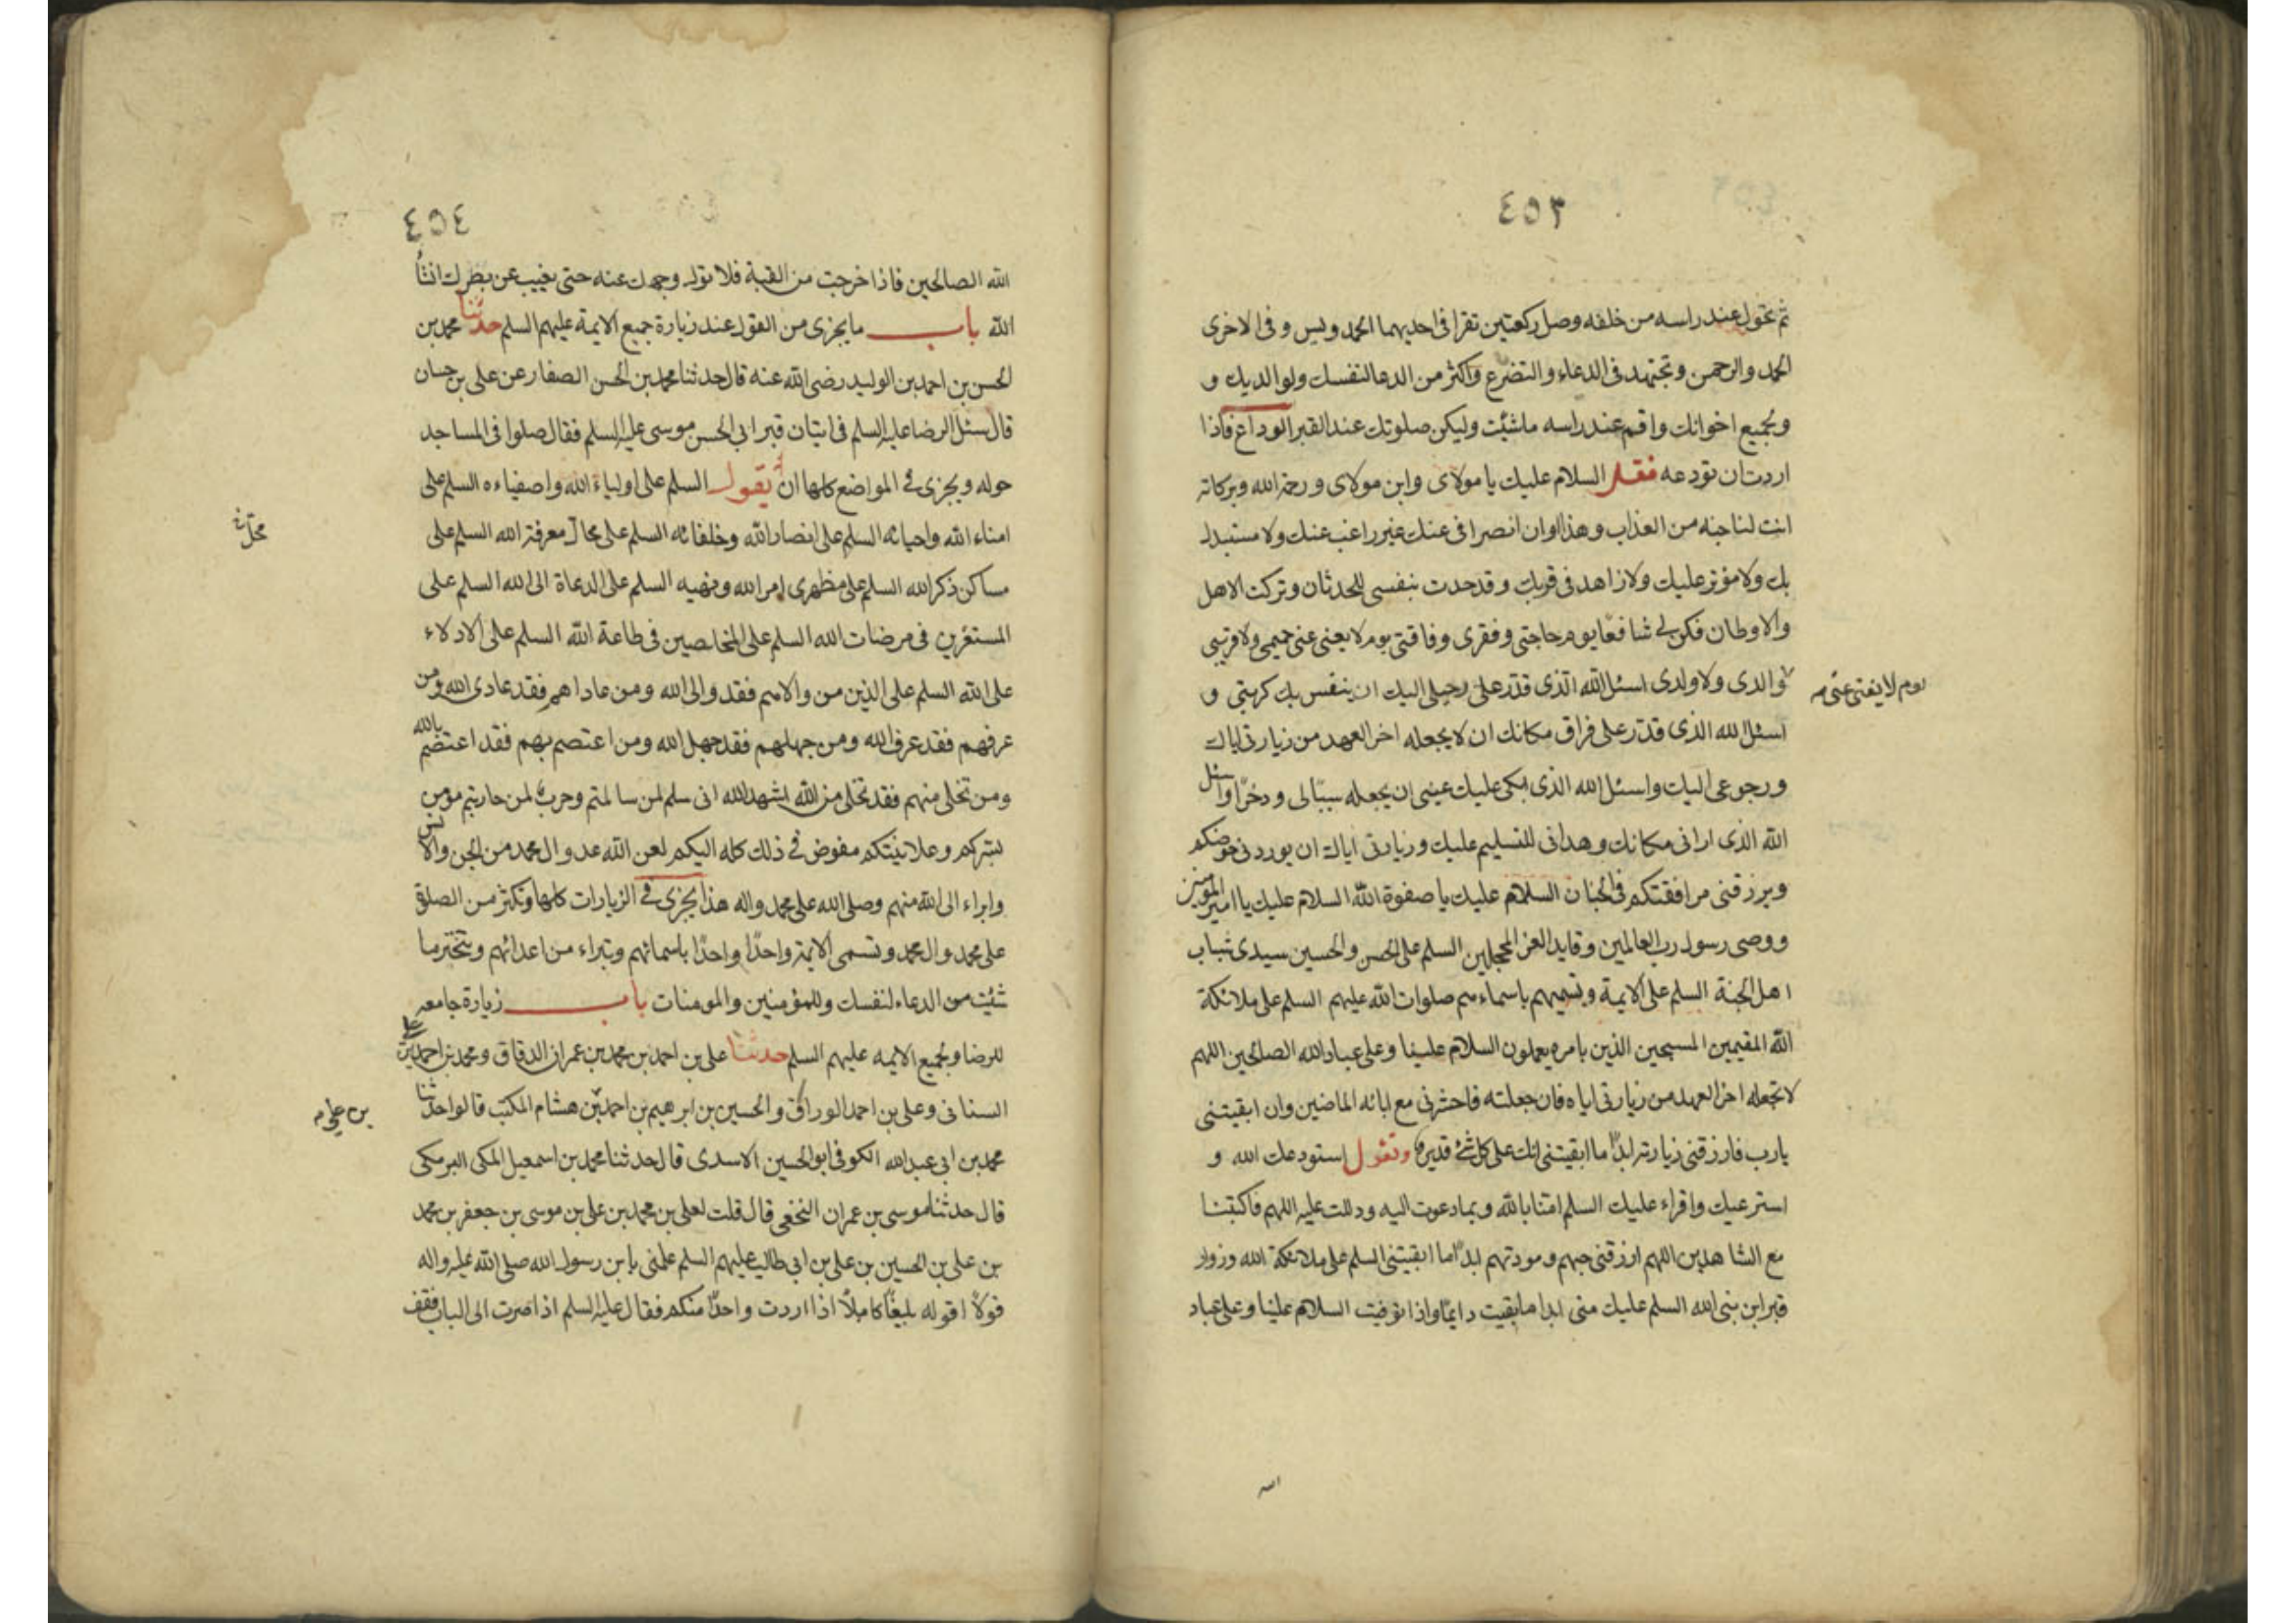 ٤٥٣
ثم تحول عند راسه من خلفه وصل ركعتين تقرا فى احديهما الحمد ويس وفى الاخرى
الحمد والرحمن وتجتهد فى الدعاء والتضرع واكثر من الدعا لنفسك ولوالديك و
وبجميع اخوانك واقم عند راسه ماشئت وليكن صلوتك عند القبر الوداع فاذا
اردت ان تودعه فقل السلام عليك يا مولاى وابن مولاى ورحمة الله وبركاته
انت لنا جنه من العذاب وهذا اوان انصرافى عنك غير راغب عنك ولا مستبدل
بك ولا مؤثر عليك ولا زاهد فى قربك وقد جدت بنفسى للحدثان وتركت الاهل
والاوطان فكن لى شافعًا يوم حاجتى وفقرى وفاقتى يوم لا يغنى عنى حميمى ولا قريبى
يوم لا يغنى عنى
والدى ولا ولدى اسئل الله الذى قدّر على رحيلى اليك ان ينفس بك كربتى و
اسئل الله الذى قدّر على فراق مكانك ان لا يجعله اخر العهد من زيارتى اياك
ورجوعى اليك واسئل الله الذى ابكى عليك عينى ان يجعله سببًا لى وذخرًا واسئل
الله الذى ارانى مكانك وهدانى للتسليم عليك وزيارتى اياك ان يوردنى حوضكم
ويرزقنى مرافقتكم فى الجنان السلام عليك يا صفوة الله السلام عليك يا امير المؤمنين
ووصى رسول رب العالمين وقايد الغر المحجلين السلم على الحسن والحسين سيدى شباب
اهل الجنة السلم على الايمة وتسميهم باسماءهم صلوات الله عليهم السلم على ملائكة
الله المقيمين المسبحين الذين بامره يعملون السلام علينا وعلى عباد الله الصالحين اللهم
لا تجعله اخر العهد من زيارتى اياه فان جعلته فاحشرنى مع ابائه الماضين وان ابقيتنى
يا رب فارزقنى زيارته ابدًا ما ابقيتنى انك على كل شئ قدير وتقول استودعك الله و
استرعيك واقراء عليك السلم امنا بالله وبما دعوت اليه ودللت عليه اللهم فاكتبنا
مع الشاهدين اللهم ارزقنى حبهم ومودتهم ابدًا ما ابقيتنى السلم على ملائكة الله وزوار
قبر ابن نبى الله السلم عليك منى ابدا ما بقيت دايمًا واذا توفيت السلام علينا وعلى عباد
الله
٤٥٤
الله الصالحين فاذا خرجت من القبة فلا تول وجهك عنه حتى يغيب عن بصرك انشأ
الله باب ما يجزى من القول عند زيارة جميع الايمة عليهم السلم حدثنا محمد بن
الحسن بن احمد بن الوليد رضى الله عنه قال حدثنا محمد بن الحسن الصفار عن على بن حسان
قال سئل الرضا عليه السلم فى اتيان قبر ابى الحسن موسى عليه السلم فقال صلوا فى المساجد
حوله ويجزى فى المواضع كلها ان تقول السلم على اولياء الله واصفياءه السلم على
امناء الله واحبائه السلم على انصار الله وخلفائه السلم على محال معرفة الله السلم على
محل
مساكن ذكر الله السلم على مظهرى امر الله ونهيه السلم على الدعاة الى الله السلم على
المستقرين فى مرضات الله السلم على المخلصين فى طاعة الله السلم على الادلاء
على الله السلم على الذين من والاهم فقد والى الله ومن عاداهم فقد عادى الله ومن
عرفهم فقد عرف الله ومن جهلهم فقد جهل الله ومن اعتصم بهم فقد اعتصم بالله
ومن تخلى منهم فقد تخلى من الله اشهد الله انى سلم لمن سالمتم وحرب لمن حاربتم مؤمن
بسركم وعلانيتكم مفوض فى ذلك كله اليكم لعن الله عدو ال محمد من الجن والانس
وابراء الى الله منهم وصلى الله على محمد واله هذا يجزى فى الزيارات كلها وتكثر من الصلوة
على محمد وال محمد وتسمى الايمة واحدًا واحدًا باسمائهم وتبراء من اعدائهم وتتخير ما
شئت من الدعاء لنفسك وللمؤمنين والمومنات باب زيارة جامعه
للرضا وبجميع الايمه عليهم السلم حدثنا على بن احمد بن محمد بن عمران الدقاق ومحمد بن احمد
السنانى وعلى بن احمد الوراق والحسين بن ابرهيم بن احمد بن هشام المكتب قالوا حدثنا
محمد بن ابى عبد الله الكوفى ابو الحسين الاسدى قال حدثنا محمد بن اسمعيل المكى البرمكى
قال حدثنا موسى بن عمران النخعى قال قلت لعلى بن محمد بن على بن موسى بن جعفر بن محمد
بن على بن الحسين بن على بن ابى طالب عليهم السلم علمنى يا بن رسول الله صلى الله عليه واله
قولًا اقوله بليغًا كاملًا اذا اردت واحدًا منكم فقال عليه السلم اذا صرت الى الباب فقف